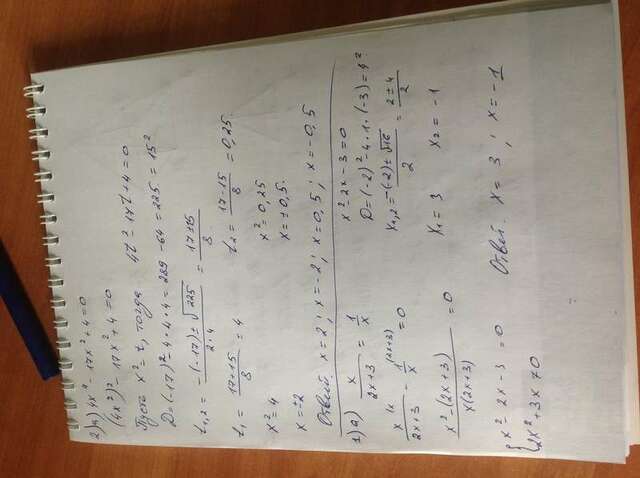 2) а) 4x⁴ - 17x² + 4 = 0
(4x²)² - 17x² + 4 = 0
Пусть x² = t, тогда 4t² - 17t + 4 = 0
D = (-17)² - 4·4·4 = 289 - 64 = 225 = 15²
t₁,₂ = -(-17) ± √225 / 2·4 = 17 ± 15 / 8
t₁ = 17+15 / 8 = 4 t₂ = 17-15 / 8 = 0,25
x² = 4 x² = 0,25
x = ±2 x = ±0,5
Ответ. x = 2 ; x = -2 ; x = 0,5 ; x = -0,5
1) а) x / 2x+3 = 1 / x
x / 2x+3 - 1 / x = 0
x² - (2x+3) / x(2x+3) = 0
{ x² - 2x - 3 = 0
2x² + 3x ≠ 0
x² - 2x - 3 = 0
D = (-2)² - 4·1·(-3) = 4²
x₁,₂ = -(-2) ± √16 / 2 = 2 ± 4 / 2
x₁ = 3 x₂ = -1
Ответ. x = 3 ; x = -1